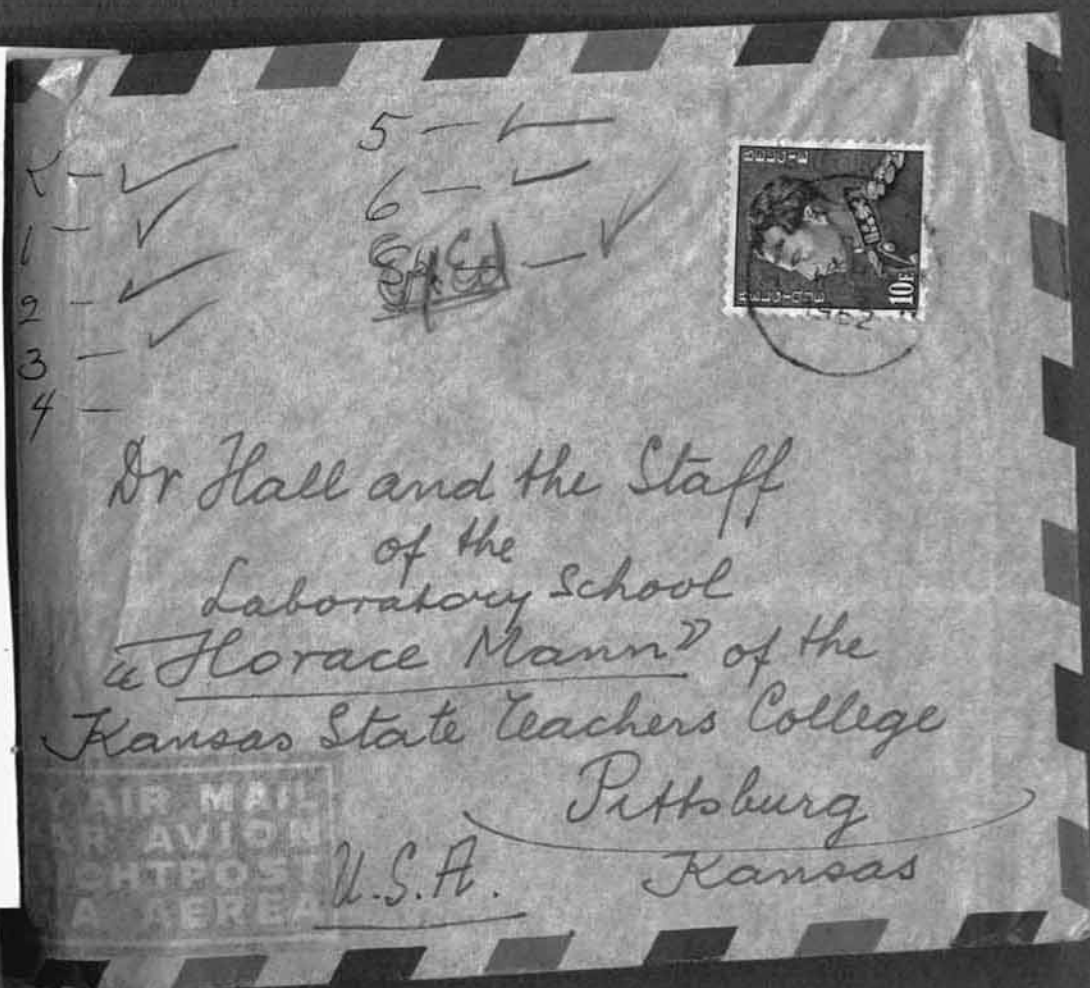 K - ✓
1 - ✓
2 - ✓
3 - ✓
4 -
5 - ✓
6 - ✓
Sp Ed - ✓
10F
1952
Dr Hall and the Staff
of the
Laboratory School
"Horace Mann" of the
Kansas State Teachers College
Pittsburg
Kansas
U.S.A.
Y AIR MAIL
AR AVION
IGHTPOST
A AEREA